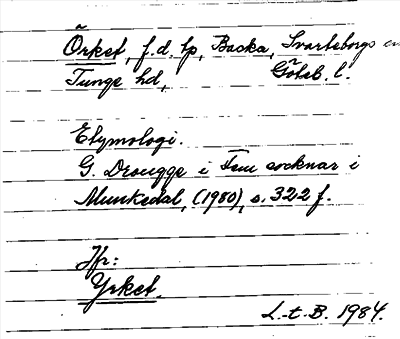 Örket, f.d. tp, Backa, Svarteborgs
Tunge hd, Göteb. l.
Etymologi.
G. Drougge i Fem socknar i
Munkedal, (1980), s. 322 f.
Jfr:
Yrket.
L-t-B. 1984.